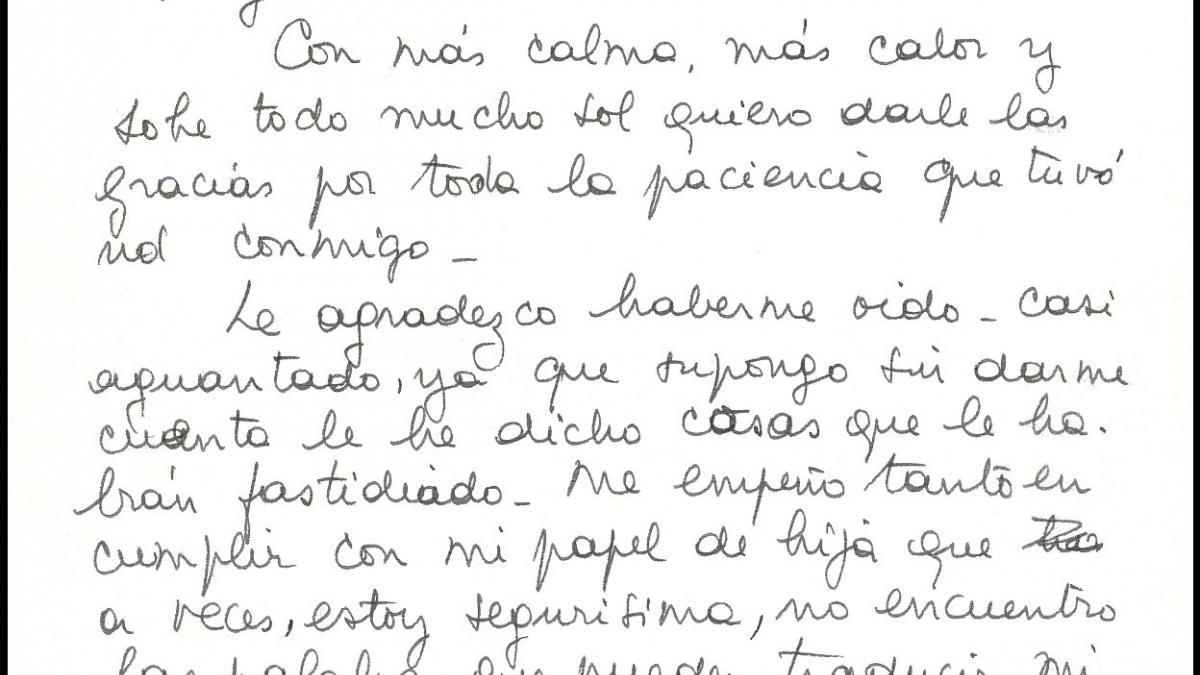 Con más calma, más calor y
sobre todo mucho sol quiero darle las
gracias por toda la paciencia que tuvó
ud conmigo -
Le agradezco haberme oido - casi
aguantado, ya que supongo sin darme
cuanta le he dicho cosas que le ha-
brán fastidiado - Me empeño tanto en
cumplir con mi papel de hija que
a veces, estoy segurisima, no encuentro
las palabras que puede traducir mi